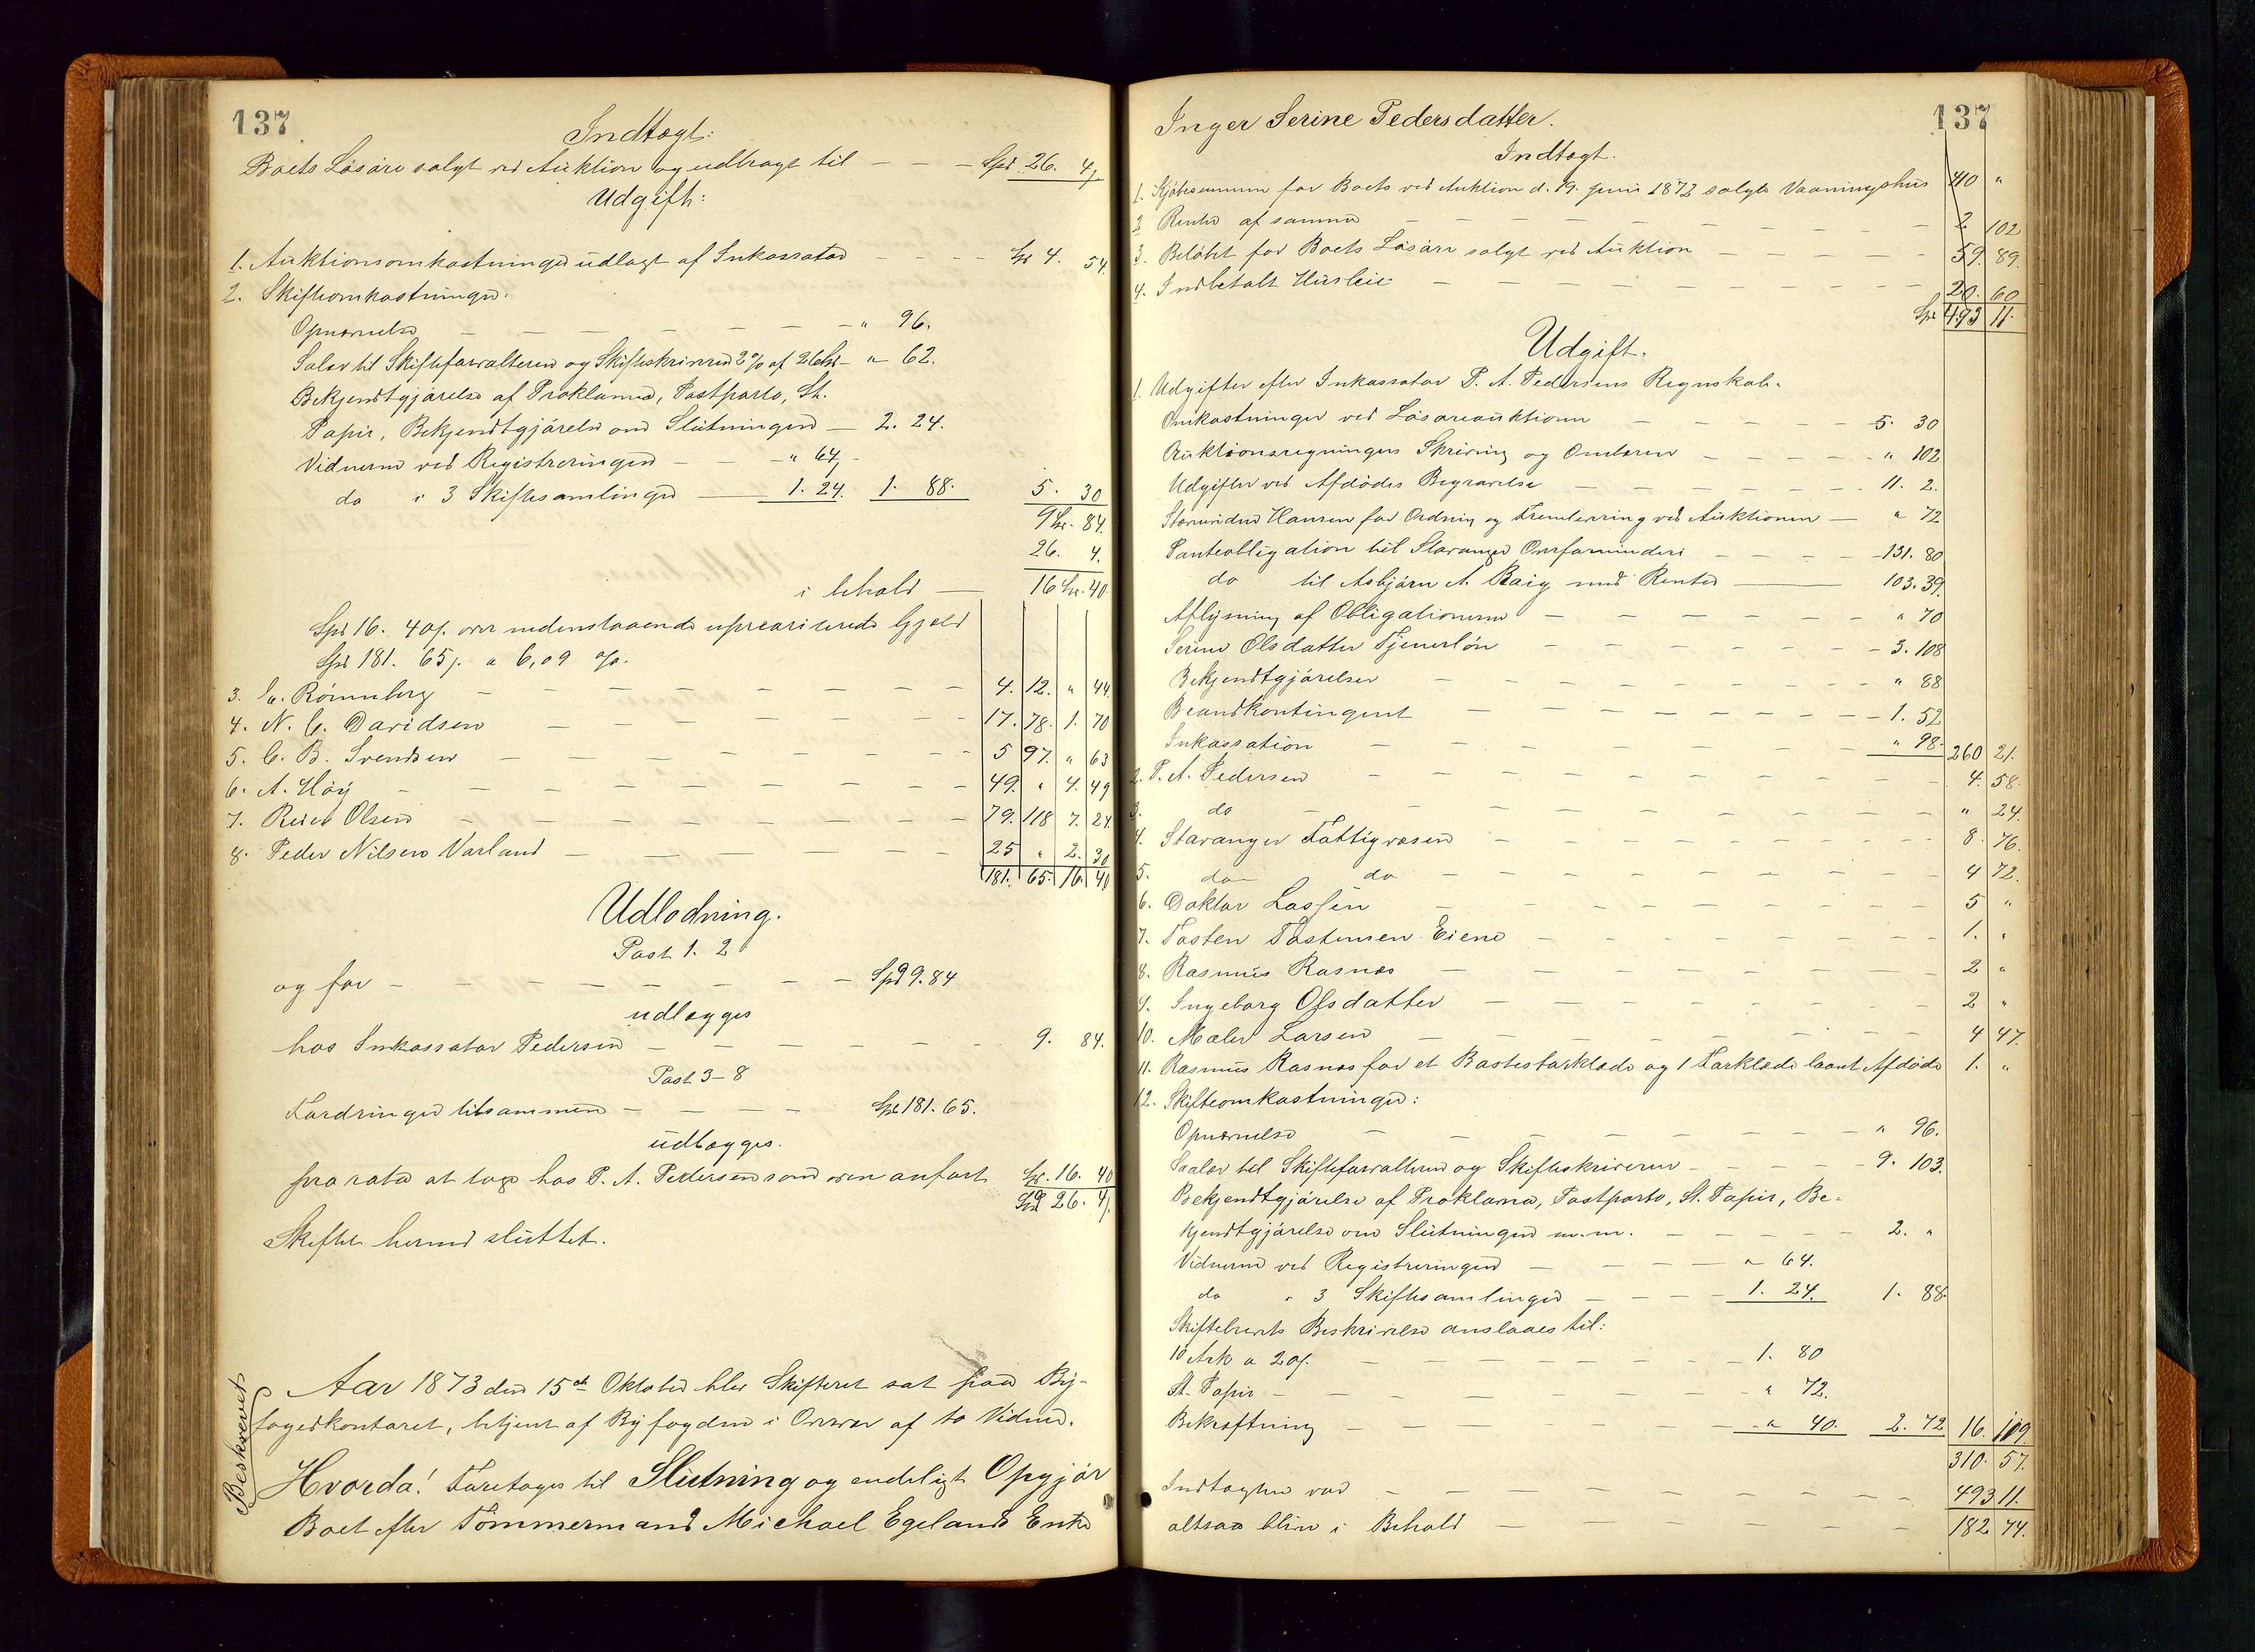 137
Indtægt:
Boets Løsøre solgt ved Auktion og udbragt til — — — Spd 26. 4
Udgift:
1. Auktionsomkostninger udlagt af Inkassator — — — — Spd 4. 54.
2. Skifteomkostninger:
Opnævnelse — — — — — — — " 96.
Salær til Skifteforvalteren og Skifteskriveren 2% af 26 Spd — " 62.
Bekjendtgjørelse af Proklama, Postporto, St.
Papir, Bekjendtgjørelse om Slutningen — 2. 24.
Vidnerne ved Registreringen — — " 64
do " 3 Skiftesamlinger — 1. 24. 1. 88. 5. 30
9 Spd. 84.
26. 4.
i behold — 16 Spd. 40
Spd 16. 40 s. over nedenstaaende uprioriterede Gjæld
Spd 181. 65 s. a 6,09 %.
3. C. Rönneberg — — — — 4. 12. " 44
4. N. C. Davidsen — — — — 17. 78. 1. 70
5. C. B. Svendsen — — — — 5 97. " 63
6. A. Höy — — — — 49. " 4. 49
7. Reier Olsen — — — — 79. 118 7. 24.
8. Peder Nilsen Varland — — — — 25 " 2. 30
181. 65. 16. 40
Udlodning.
Post 1. 2
og for — — — — — — — Spd 9. 84
udlægges
hos Inkassator Pedersen — — — — — — 9. 84.
Post 3–8
Fordringer tilsammen — — — — Spd 181. 65.
udlægges.
pro rata at tage hos P. A. Pedersen som oven anført Spd. 16. 40
Spd 26. 4
Skiftet hermed sluttet.
Beskrevet
Aar 1873 den 15de Oktober blev Skifteret sat paa By-
fogedkontoret, betjent af Byfogden i Overvær af to Vidner.
Hvorda! Foretoges til Slutning og endeligt Opgjør
Boet efter Tømmermand Michael Egelands Enke
Inger Serine Pedersdatter.
137
Indtægt.
1. Kjøbesummen for Boets ved Auktion d. 19. juni 1872 solgte Vaaningshus 410 "
2 Renter af samme — — — — — — 2 102
3. Beløbet for Boets Løsøre solgt ved Auktion — — — — — 59. 89.
4. Indbetalt Husleie — — — — — — — 20. 60
Spd 493 11.
Udgift.
1. Udgifter efter Inkassator P. A. Pedersens Regnskab.
Omkostninger ved Løsøreauktionen — — — — — 5. 30
Auktionsregningens Skrivning og Ombæren — — — — — " 102
Udgifter ved Afdødes Begravelse — — — — — 11. 2.
Hansen for Ordning og Fremlevering ved Auktionen — " 72
Panteobligation til Stavanger Overformynderi — — — — 131. 80
do til Asbjørn A. Raig med Renter — — 103. 39.
Aflysning af Obligationerne — — — — — — " 70
Serine Olsdatter Tjenerløn — — — — — — 3. 108
Bekjendtgjørelser — — — — — — — " 88
Brandkontingent — — — — — — — 1. 52
Inkassation — — — — — — — " 98. 260 21.
2. P. A. Pedersen — — — — — — — 4. 58.
3. do — — — — — — — " 24.
4. Stavanger Fattigvæsen — — — — — — 8. 76.
5. do do — — — — — — 4 72.
6. Doktor Lassen — — — — — — 5 "
7. Tosten Tostensen Eiene — — — — — — 1. "
8. Rasmus Rasnæs — — — — — — 2 "
9. Ingeborg Olsdatter — — — — — — 2 "
10. Maler Larsen — — — — — — 4 47.
11. Rasmus Rasnæs for et og 1 Forklæde laant Afdøde 1. "
12. Skifteomkostninger:
Opnævnelse — — — — — — — " 96.
Salær til Skifteforvalteren og Skifteskriveren — — — — 9. 103.
Bekjendtgjørelse af Proklama, Postporto, St. Papir, Be-
kjendtgjørelse om Slutningen m.m. — — — — — 2. "
Vidnerne ved Registreringen — — — — " 64.
do " 3 Skiftesamlinger — — — — 1. 24. 1. 88.
Skiftebrevets Beskrivelse anslaaes til:
10 Ark a 20 s. — — — — — — 1. 80
St. Papir — — — — — — — " 72.
Bekræftning — — — — — — — " 40. 2. 72 16. 109.
310. 57.
Indtægten var — — — — — — — 493 11.
altsaa bliver i Behold — — — — — 182 74.